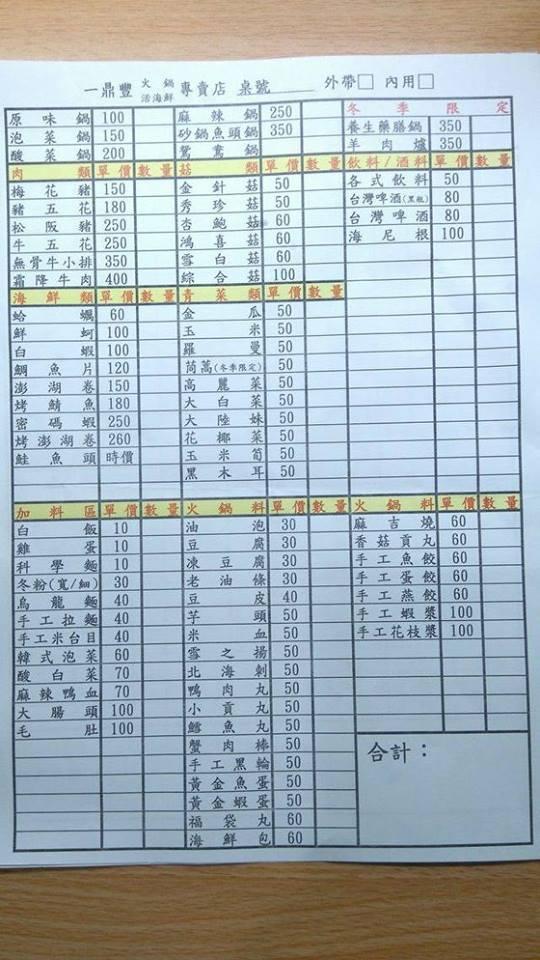 一鼎豐 火鍋 活海鮮 專賣店 桌號______ 外帶□ 內用□
原味鍋 100 麻辣鍋 250 冬季限定
泡菜鍋 150 砂鍋魚頭鍋 350 養生藥膳鍋 350
酸菜鍋 200 鴛鴦鍋 羊肉爐 350
肉類 單價 數量 菇類 單價 數量 飲料/酒料 單價 數量
梅花豬 150 金針菇 50 各式飲料 50
豬五花 180 秀珍菇 50 台灣啤酒(黑瓶) 80
松阪豬 250 杏鮑菇 60 台灣啤酒 80
牛五花 250 鴻喜菇 60 海尼根 100
無骨牛小排 350 雪白菇 60
霜降牛肉 400 綜合菇 100
海鮮類 單價 數量 青菜類 單價 數量
蛤蠣 60 金瓜 50
鮮蚵 100 玉米 50
白蝦 100 羅曼 50
鯛魚片 120 茼萵(冬季限定) 50
澎湖卷 150 高麗菜 50
烤鯖魚 180 大白菜 50
密碼蝦 250 大陸妹 50
烤澎湖卷 260 花椰菜 50
鮭魚頭 時價 玉米筍 50
黑木耳 50
加料區 單價 數量 火鍋料 單價 數量 火鍋料 單價 數量
白飯 10 油泡 30 麻吉燒 60
雞蛋 10 豆腐 30 香菇貢丸 60
科學麵 10 凍豆腐 30 手工魚餃 60
冬粉(寬/細) 30 老油條 30 手工蛋餃 60
烏龍麵 40 豆皮 40 手工燕餃 60
手工拉麵 40 芋頭 50 手工蝦漿 100
手工米台目 40 米血 50 手工花枝漿 100
韓式泡菜 60 雪之揚 50
酸白菜 70 北海刺 50
麻辣鴨血 70 鴨肉丸 50
大腸頭 100 小貢丸 50
毛肚 100 鱈魚丸 50
蟹肉棒 50
手工黑輪 50
黃金魚蛋 50
黃金蝦蛋 50
福袋丸 60
海鮮包 60
合計：